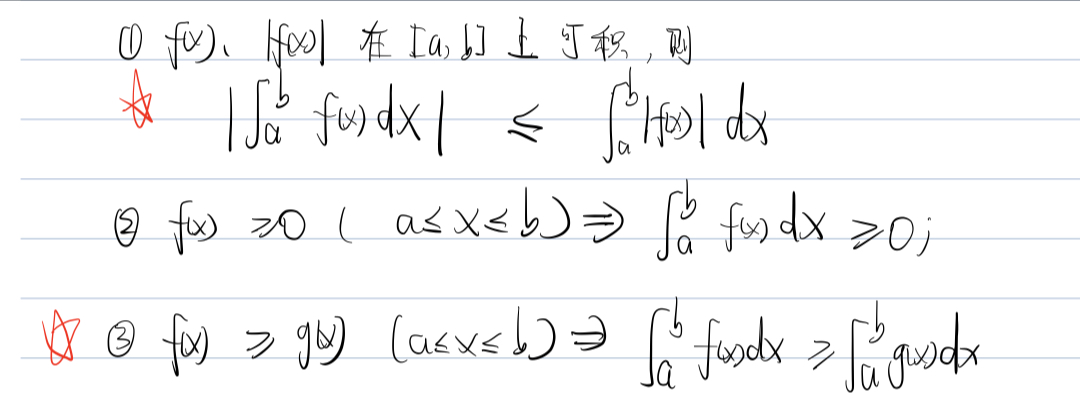 ① f(x)、|f(x)| 在 [a, b] 上 可 积, 则
|∫_a^b f(x) dx| ≤ ∫_a^b |f(x)| dx
② f(x) ≥0 ( a≤x≤b) ⇒ ∫_a^b f(x) dx ≥0;
③ f(x) ≥ g(x) (a≤x≤b) ⇒ ∫_a^b f(x)dx ≥ ∫_a^b g(x)dx